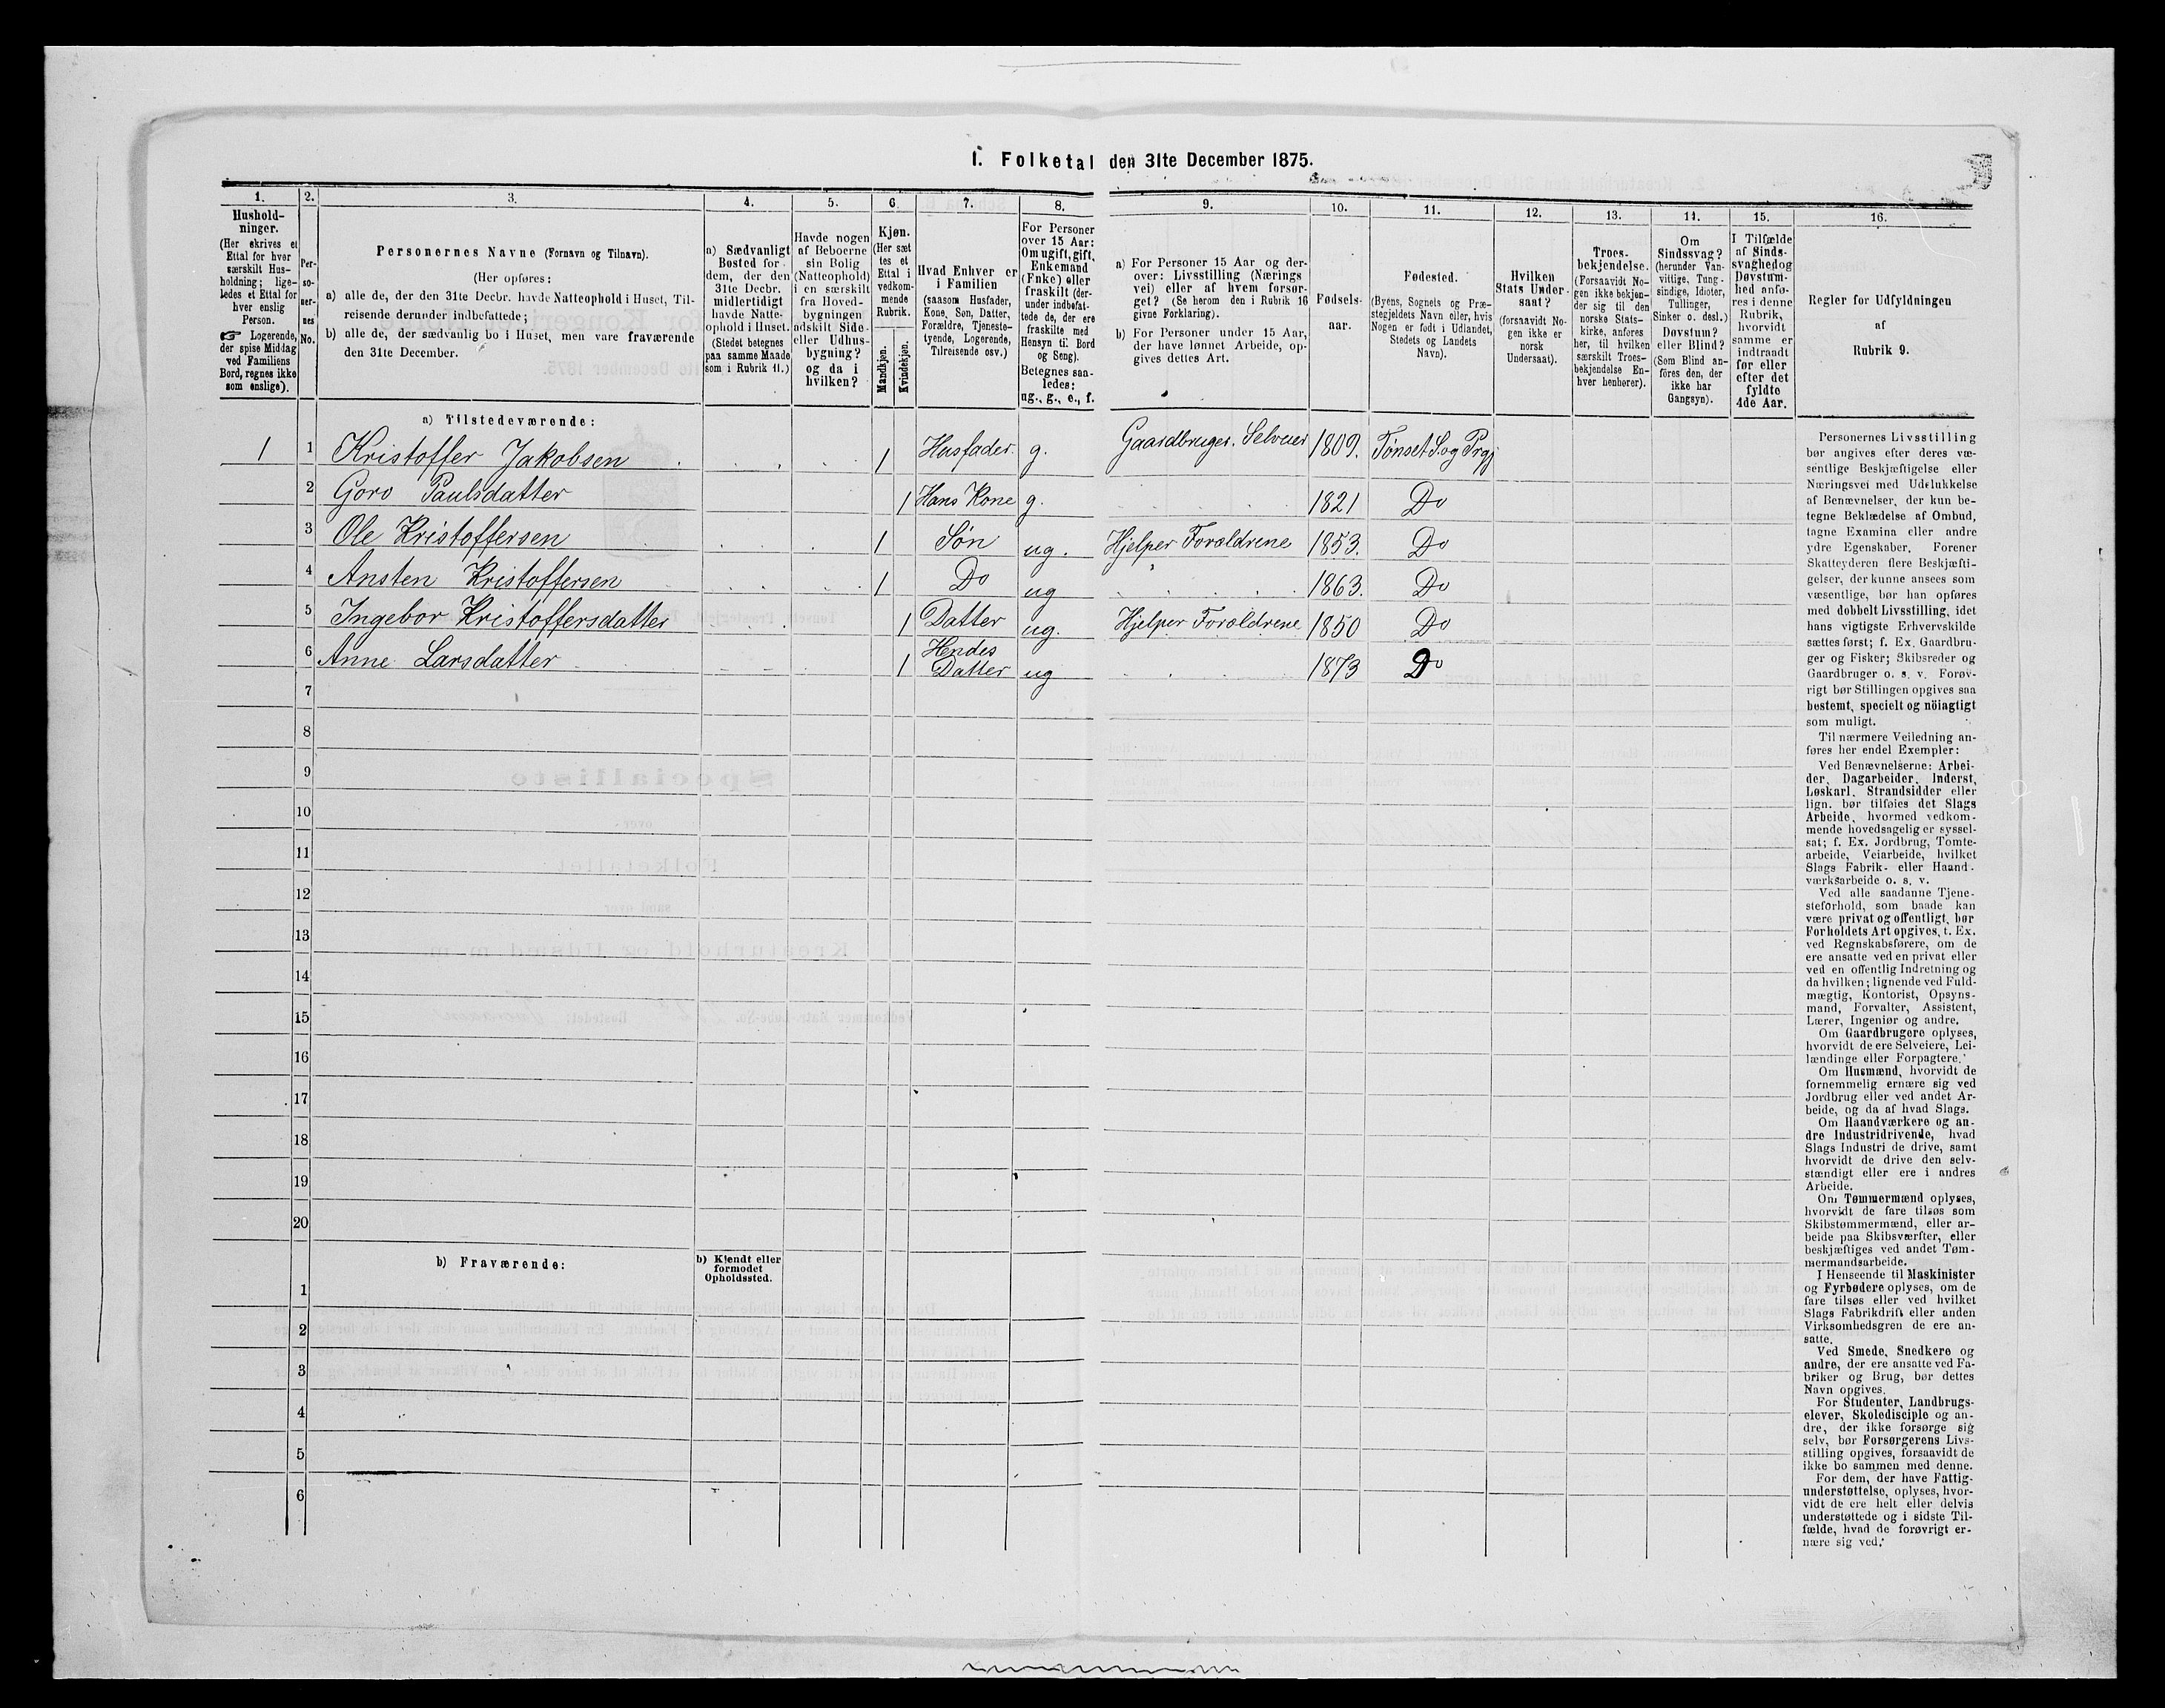 I. Folketal den 31te December 1875.
1.
Hushold-
ninger.
(Her skrives et
Ettal for hver
særskilt Hus-
holdning; lige-
ledes et Ettal for
hver enslig
Person.
☞ Logerende,
der spise Middag
ved Familiens
Bord, regnes ikke
som enslige).
2.
Per-
so-
ner-
nes
No.
3.
Personernes Navne (Fornavn og Tilnavn).
(Her opføres:
a) alle de, der den 31te Decbr. havde Natteophold i Huset, Til-
reisende derunder indbefattede;
b) alle de, der sædvanlig bo i Huset, men vare fraværende
den 31te December.
4.
a) Sædvanligt
Bosted for
dem, der den
31te Decbr.
midlertidigt
havde Natte-
ophold i Huset.
(Stedet betegnes
paa samme Maade
som i Rubrik 11.)
5.
Havde nogen
af Beboerne
sin Bolig
(Natteophold)
i en særskilt
fra Hoved-
bygningen
adskilt Side-
eller Udhus-
bygning?
og da i
hvilken?
6.
Kjøn.
(Her sæt
tes et
Ettal i
vedkom-
mende
Rubrik.
Mandkjøn.
Kvindekjøn.
7.
Hvad Enhver er
i Familien
(saasom Husfader,
Kone, Søn, Datter,
Forældre, Tjeneste-
tyende, Logerende,
Tilreisende osv.)
8.
For Personer
over 15 Aar:
Om ugift, gift,
Enkemand
(Enke) eller
fraskilt (der-
under indbefat-
tede de, der ere
fraskilte med
Hensyn til Bord
og Seng).
Betegnes saa-
ledes:
ug., g., e., f.
9.
a) For Personer 15 Aar og der-
over: Livsstilling (Nærings
vei) eller af hvem forsør-
get? (Se herom den i Rubrik 16
givne Forklaring).
b) For Personer under 15 Aar,
der have lønnet Arbeide, op-
gives dettes Art.
10.
Fødsels-
aar.
11.
Fødested.
(Byens, Sognets og Præ-
stegjeldets Navn eller, hvis
Nogen er født i Udlandet,
Stedets og Landets
Navn).
12.
Hvilken
Stats Under-
saat?
(forsaavidt No-
gen ikke er
norsk
Undersaat).
13.
Troes-
bekjendelse.
(Forsaavidt No-
gen ikke bekjen-
der sig til den
norske Stats-
kirke, anføres
her, til hvilken
særskilt Troes-
bekjendelse En-
hver henhører).
14.
Om
Sindssvag?
(herunder Van-
vittige, Tung-
sindige, Idioter,
Tullinger,
Sinker o. desl.)
Døvstum?
eller Blind?
(Som Blind an-
føres den, der
ikke har
Gangsyn).
15.
I Tilfælde
af Sinds-
svaghed og
Døvstum-
hed anfø-
res i denne
Rubrik,
hvorvidt
samme er
indtraadt
før eller
efter det
fyldte
4de Aar.
16.
Regler for Udfyldningen
af
Rubrik 9.
a) Tilstedeværende:
1 1 Kristoffer Jakobsen 1 Husfader. g. Gaardbruger. Selveier 1809. Tønset S. og Prgj
2 Goro Paulsdatter 1 Hans Kone g. 1821 Do
3 Ole Kristoffersen 1 Søn ug. Hjelper Forældrene 1853. Do
4 Ansten Kristoffersen 1 Do ug 1863. Do
5 Ingebor Kristoffersdatter 1 Datter ug. Hjelper Forældrene 1850 Do
6 Anne Larsdatter 1 Hendes Datter ug 1873 Do
7
8
9
10
11
12
13
14
15
16
17
18
19
20
b) Fraværende:
b) Kjendt eller
formodet
Opholdssted.
1
2
3
4
5
6
Personernes Livsstilling
bør angives efter deres væ-
sentlige Beskjæftigelse eller
Næringsvei med Udelukkelse
af Benævnelser, der kun be-
tegne Beklædelse af Ombud,
tagne Examina eller andre
ydre Egenskaber. Forener
Skatteyderen flere Beskjæfti-
gelser, der kunne ansees som
væsentlige, bør han opføres
med dobbelt Livsstilling, idet
hans vigtigste Erhvervskilde
sættes først; f. Ex. Gaardbru-
ger og Fisker; Skibsreder og
Gaardbruger o. s. v. Forøv-
rigt bør Stillingen opgives saa
bestemt, specielt og nöiagtigt
som muligt.
Til nærmere Veiledning an-
føres her endel Exempler:
Ved Benævnelserne: Arbei-
der, Dagarbeider, Inderst,
Løskarl, Strandsidder eller
lign. bør tilføies det Slags
Arbeide, hvormed vedkom-
mende hovedsagelig er syssel-
sat; f. Ex. Jordbrug, Tomte-
arbeide, Veiarbeide, hvilket
Slags Fabrik- eller Haand-
værksarbeide o. s. v.
Ved alle saadanne Tjene-
steforhold, som baade kan
være privat og offentligt, bør
Forholdets Art opgives, t. Ex.
ved Regnskabsførere, om de
ere ansatte ved en privat eller
ved en offentlig Indretning og
da hvilken; lignende ved Fuld-
mægtig, Kontorist, Opsyns-
mand, Forvalter, Assistent,
Lærer, Ingeniør og andre.
Om Gaardbrugere oplyses,
hvorvidt de ere Selveiere, Lei-
lændinge eller Forpagtere.
Om Husmænd, hvorvidt de
fornemmelig ernære sig ved
Jordbrug eller ved andet Ar-
beide, og da af hvad Slags.
Om Haandværkere og an-
dre Industridrivende, hvad
Slags Industri de drive, samt
hvorvidt de drive den selv-
stændigt eller ere i andres
Arbeide.
Om Tømmermænd oplyses,
hvorvidt de fare tilsøs som
Skibstømmermænd, eller ar-
beide paa Skibsværfter, eller
beskjæftiges ved andet Tøm-
mermandsarbeide.
I Henseende til Maskinister
og Fyrbødere oplyses, om de
fare tilsøs eller ved hvilket
Slags Fabrikdrift eller anden
Virksomhedsgren de ere an-
satte.
Ved Smede, Snedkere og
andre, der ere ansatte ved Fa-
briker og Brug, bør dettes
Navn opgives.
For Studenter, Landbrugs-
elever, Skoledisciple og an-
dre, der ikke forsørge sig
selv, bør Forsørgerens Livs-
stilling opgives, forsaavidt de
ikke bo sammen med denne.
For dem, der have Fattig-
understøttelse, oplyses, hvor-
vidt de ere helt eller delvis
understøttede og i sidste Til-
fælde, hvad de forøvrigt er-
nære sig ved.